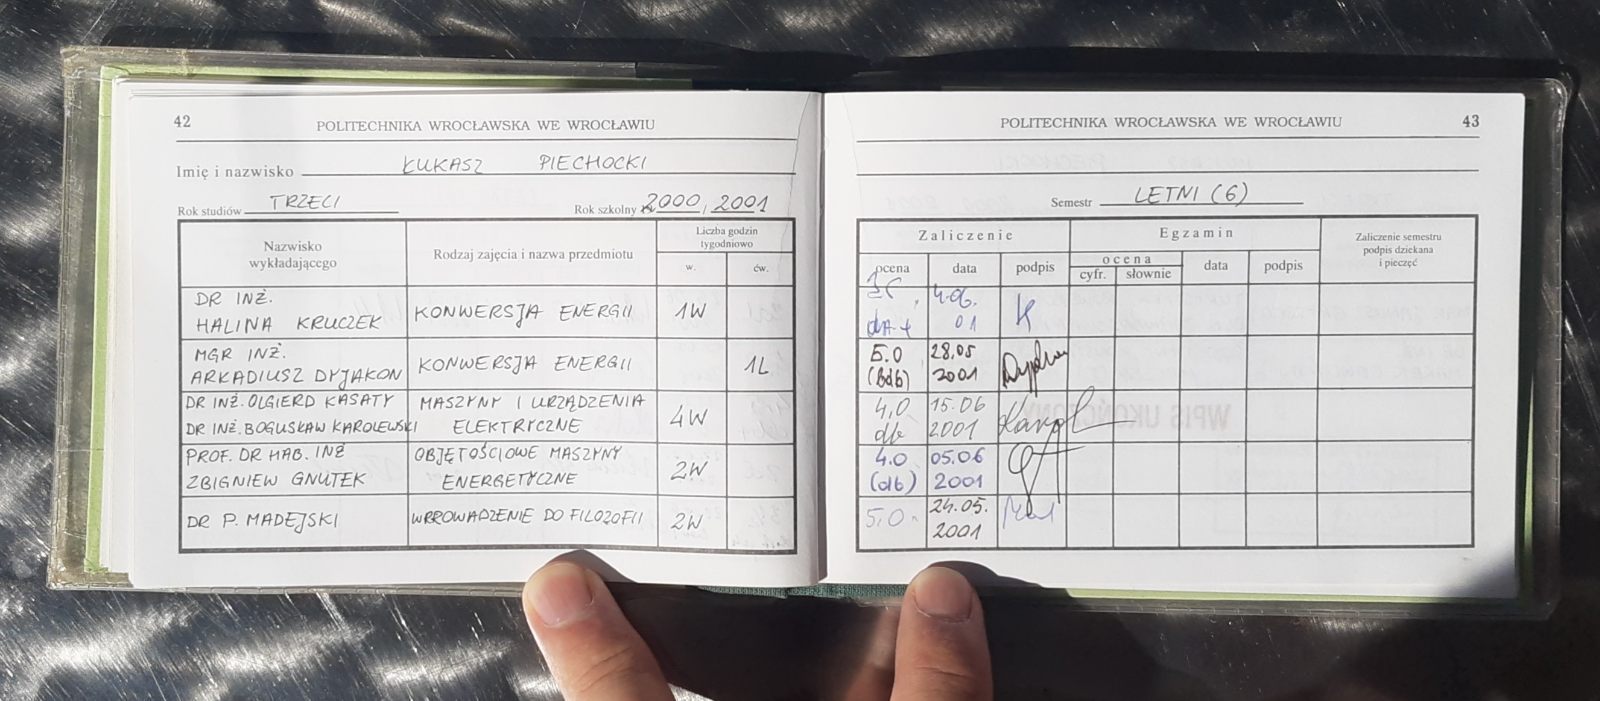 42
POLITECHNIKA WROCŁAWSKA WE WROCŁAWIU
Imię i nazwisko ŁUKASZ PIECHOCKI
Rok studiów TRZECI Rok szkolny 2000/2001
Nazwisko wykładającego
Rodzaj zajęcia i nazwa przedmiotu
Liczba godzin tygodniowo
w. ćw.
DR INŻ.
HALINA KRUCZEK KONWERSJA ENERGII 1W
MGR INŻ.
ARKADIUSZ DYJAKON KONWERSJA ENERGII 1L
DR INŻ. OLGIERD KASATY MASZYNY I URZĄDZENIA
DR INŻ. BOGUSŁAW KAROLEWSKI ELEKTRYCZNE 4W
PROF. DR HAB. INŻ OBJĘTOŚCIOWE MASZYNY
ZBIGNIEW GNUTEK ENERGETYCZNE 2W
DR P. MADEJSKI WPROWADZENIE DO FILOZOFII 2W
POLITECHNIKA WROCŁAWSKA WE WROCŁAWIU 43
Semestr LETNI (6)
Zaliczenie Egzamin
Zaliczenie semestru
podpis dziekana
i pieczęć
ocena data podpis ocena data podpis
cyfr. słownie
4.06.
01
5.0 28.05
(bdb) 2001
4,0 15.06
db 2001
4.0 05.06
(db) 2001
5,0 24.05.
2001
WPIS UKOŃCZONY